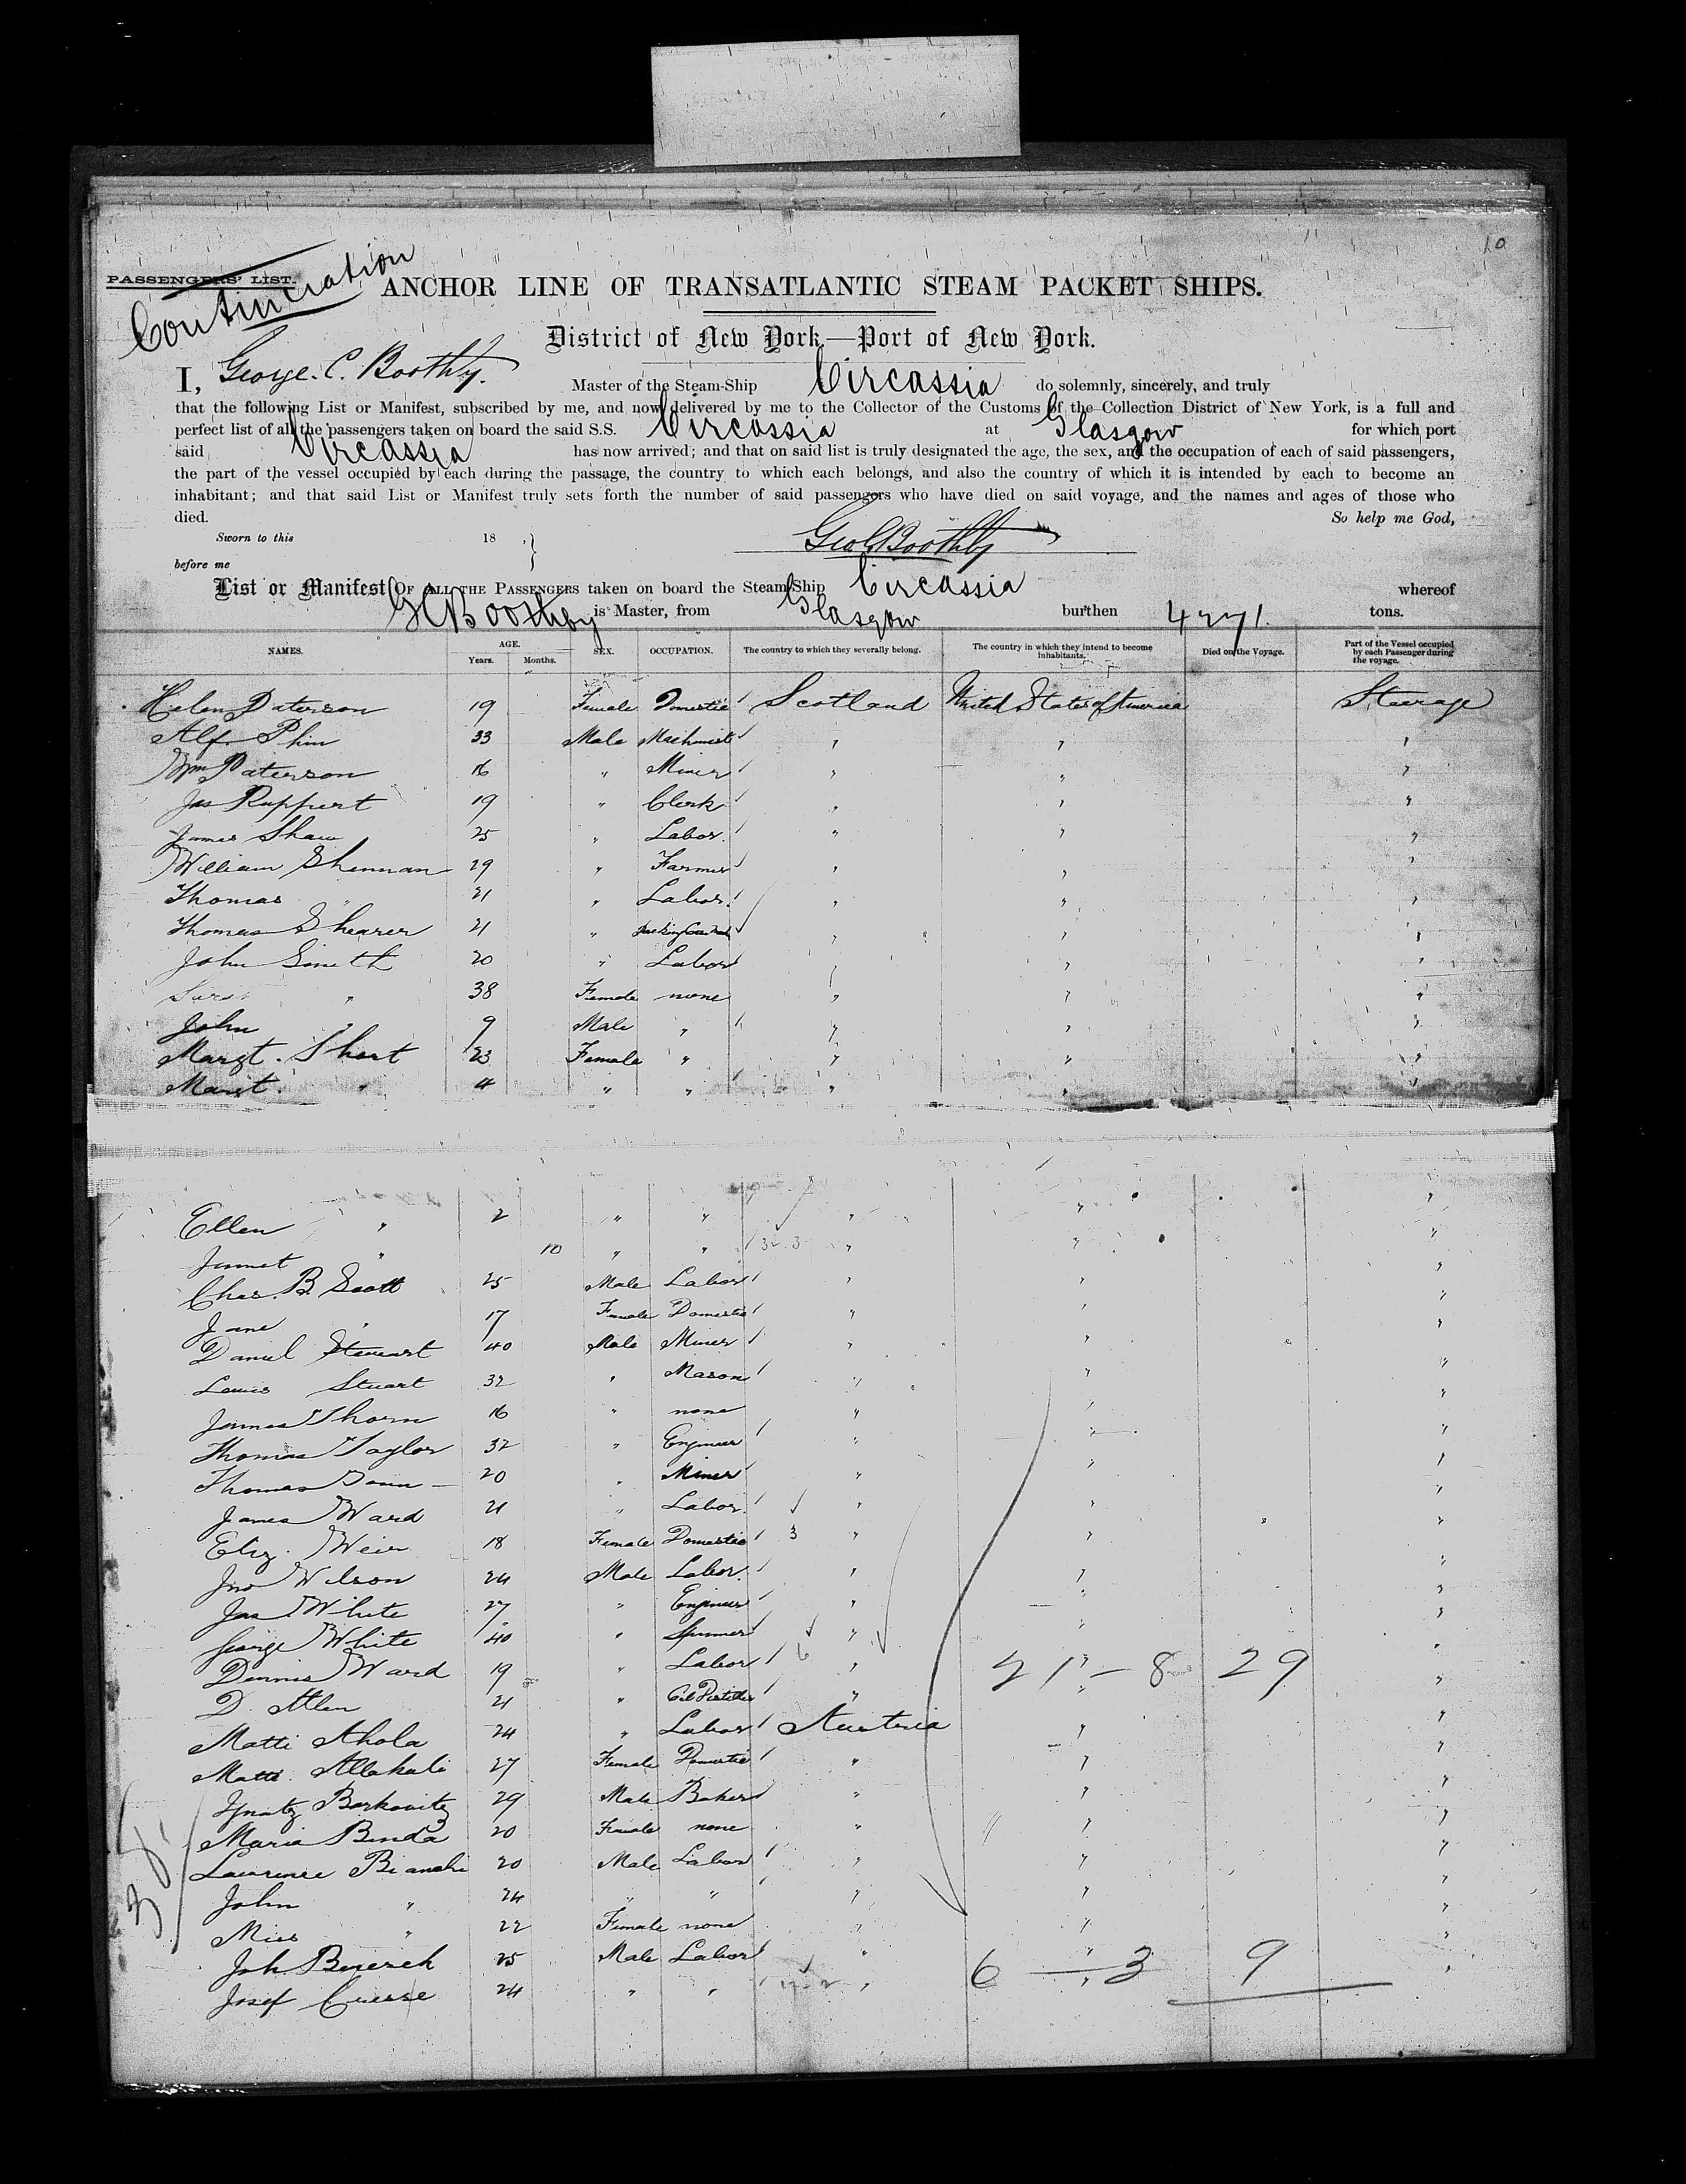 10
PASSENGERS' LIST.
Continuation
ANCHOR LINE OF TRANSATLANTIC STEAM PACKET SHIPS.
District of New York—Port of New York.
I, George. C. Boothby. Master of the Steam-Ship Circassia do solemnly, sincerely, and truly
that the following List or Manifest, subscribed by me, and now delivered by me to the Collector of the Customs of the Collection District of New York, is a full and
perfect list of all the passengers taken on board the said S.S. Circassia at Glasgow for which port
said Circassia has now arrived; and that on said list is truly designated the age, the sex, and the occupation of each of said passengers,
the part of the vessel occupied by each during the passage, the country to which each belongs, and also the country of which it is intended by each to become an
inhabitant; and that said List or Manifest truly sets forth the number of said passengers who have died on said voyage, and the names and ages of those who
died. So help me God,
Sworn to this 18 , }
Geo C Boothby
before me
List or Manifest OF ALL THE PASSENGERS taken on board the Steam Ship Circassia whereof
G C Boothby is Master, from Glasgow burthen 4271. tons.
NAMES. AGE. Years. Months. SEX. OCCUPATION. The country to which they severally belong. The country in which they intend to become inhabitants. Died on the Voyage. Part of the Vessel occupied by each Passenger during the voyage.
Helen Paterson 19 Female Domestic Scotland United States of America Steerage
Alf. Phin 33 Male Machinist " " "
Wm Paterson 16 " Miner " " "
Jas Ruppert 19 " Clerk " " "
James Shaw 25 " Labor. " " "
William Shennan 29 " Farmer " " "
Thomas " 21 " Labor. " " "
Thomas Shearer 21 " " " "
John Smith 20 " Labor " " "
" 38 Female none " " "
John " 9 Male " " " "
Margt. Short 23 Female " " " "
Margt. " 4 " " " " "
Ellen " 2 " " " " "
Jannet " 10 " " " " "
Chas. B. Scott 25 Male Labor " " "
Jane " 17 Female Domestic " " "
Daniel Stewart 40 Male Miner " " "
Louis Stuart 32 " Mason " " "
James Thorn 16 " none " " "
Thomas Taylor 32 " Engineer " " "
Thomas 20 " Miner " " "
James Ward 21 " Labor. " " "
Eliz. Weir 18 Female Domestic 3 " " "
Jno Wilson 24 Male Labor. " " "
Jas White 27 " Engineer " " "
George White 40 " Spinner " " "
Dennis Ward 19 " Labor 6 " " "
21 - 8 29
D. Allen 21 " Oil Distiller " " "
Matti Ahola 24 " Labor Austria " "
Matti Allakali 27 Female Domestic " " "
Ignatz Berkovitz 29 Male Baker " " "
Maria Benda 20 Female none " " "
Laurence Bianchi 20 Male Labor " " "
John " 24 " " " " "
Miss " 22 Female none " " "
Joh. 25 Male Labor " " "
6 - 3 9
Josef 24 " " " " "
38